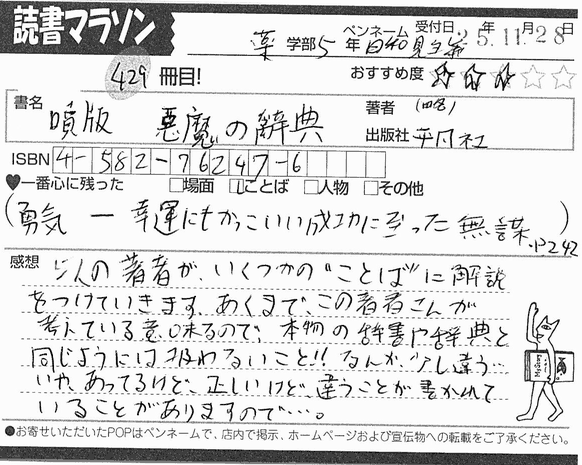 読書マラソン
薬 学部 5 年 ペンネーム 日和見当番 受付日 25年11月28日
429 冊目! おすすめ度 ☆☆☆☆☆
書名 噴版 悪魔の辞典
著者 (四名)
出版社 平凡社
ISBN 4-582-76247-6
♥一番心に残った □場面 □ことば □人物 □その他
(勇気 ー 幸運にもかっこいい成功に至った無謀 P242)
感想 5人の著者が、いくつかの“ことば”に解説
をつけていきます。あくまで、この著者さんが
考えている意味なので、本物の辞書や辞典と
同じようには扱わないこと!! なんか、少し違う…
いや、あってるけど、正しいけど、違うことが書かれて
いることがありますので…。
●お寄せいただいたPOPはペンネームで、店内で掲示、ホームページおよび宣伝物への転載をご了承ください。